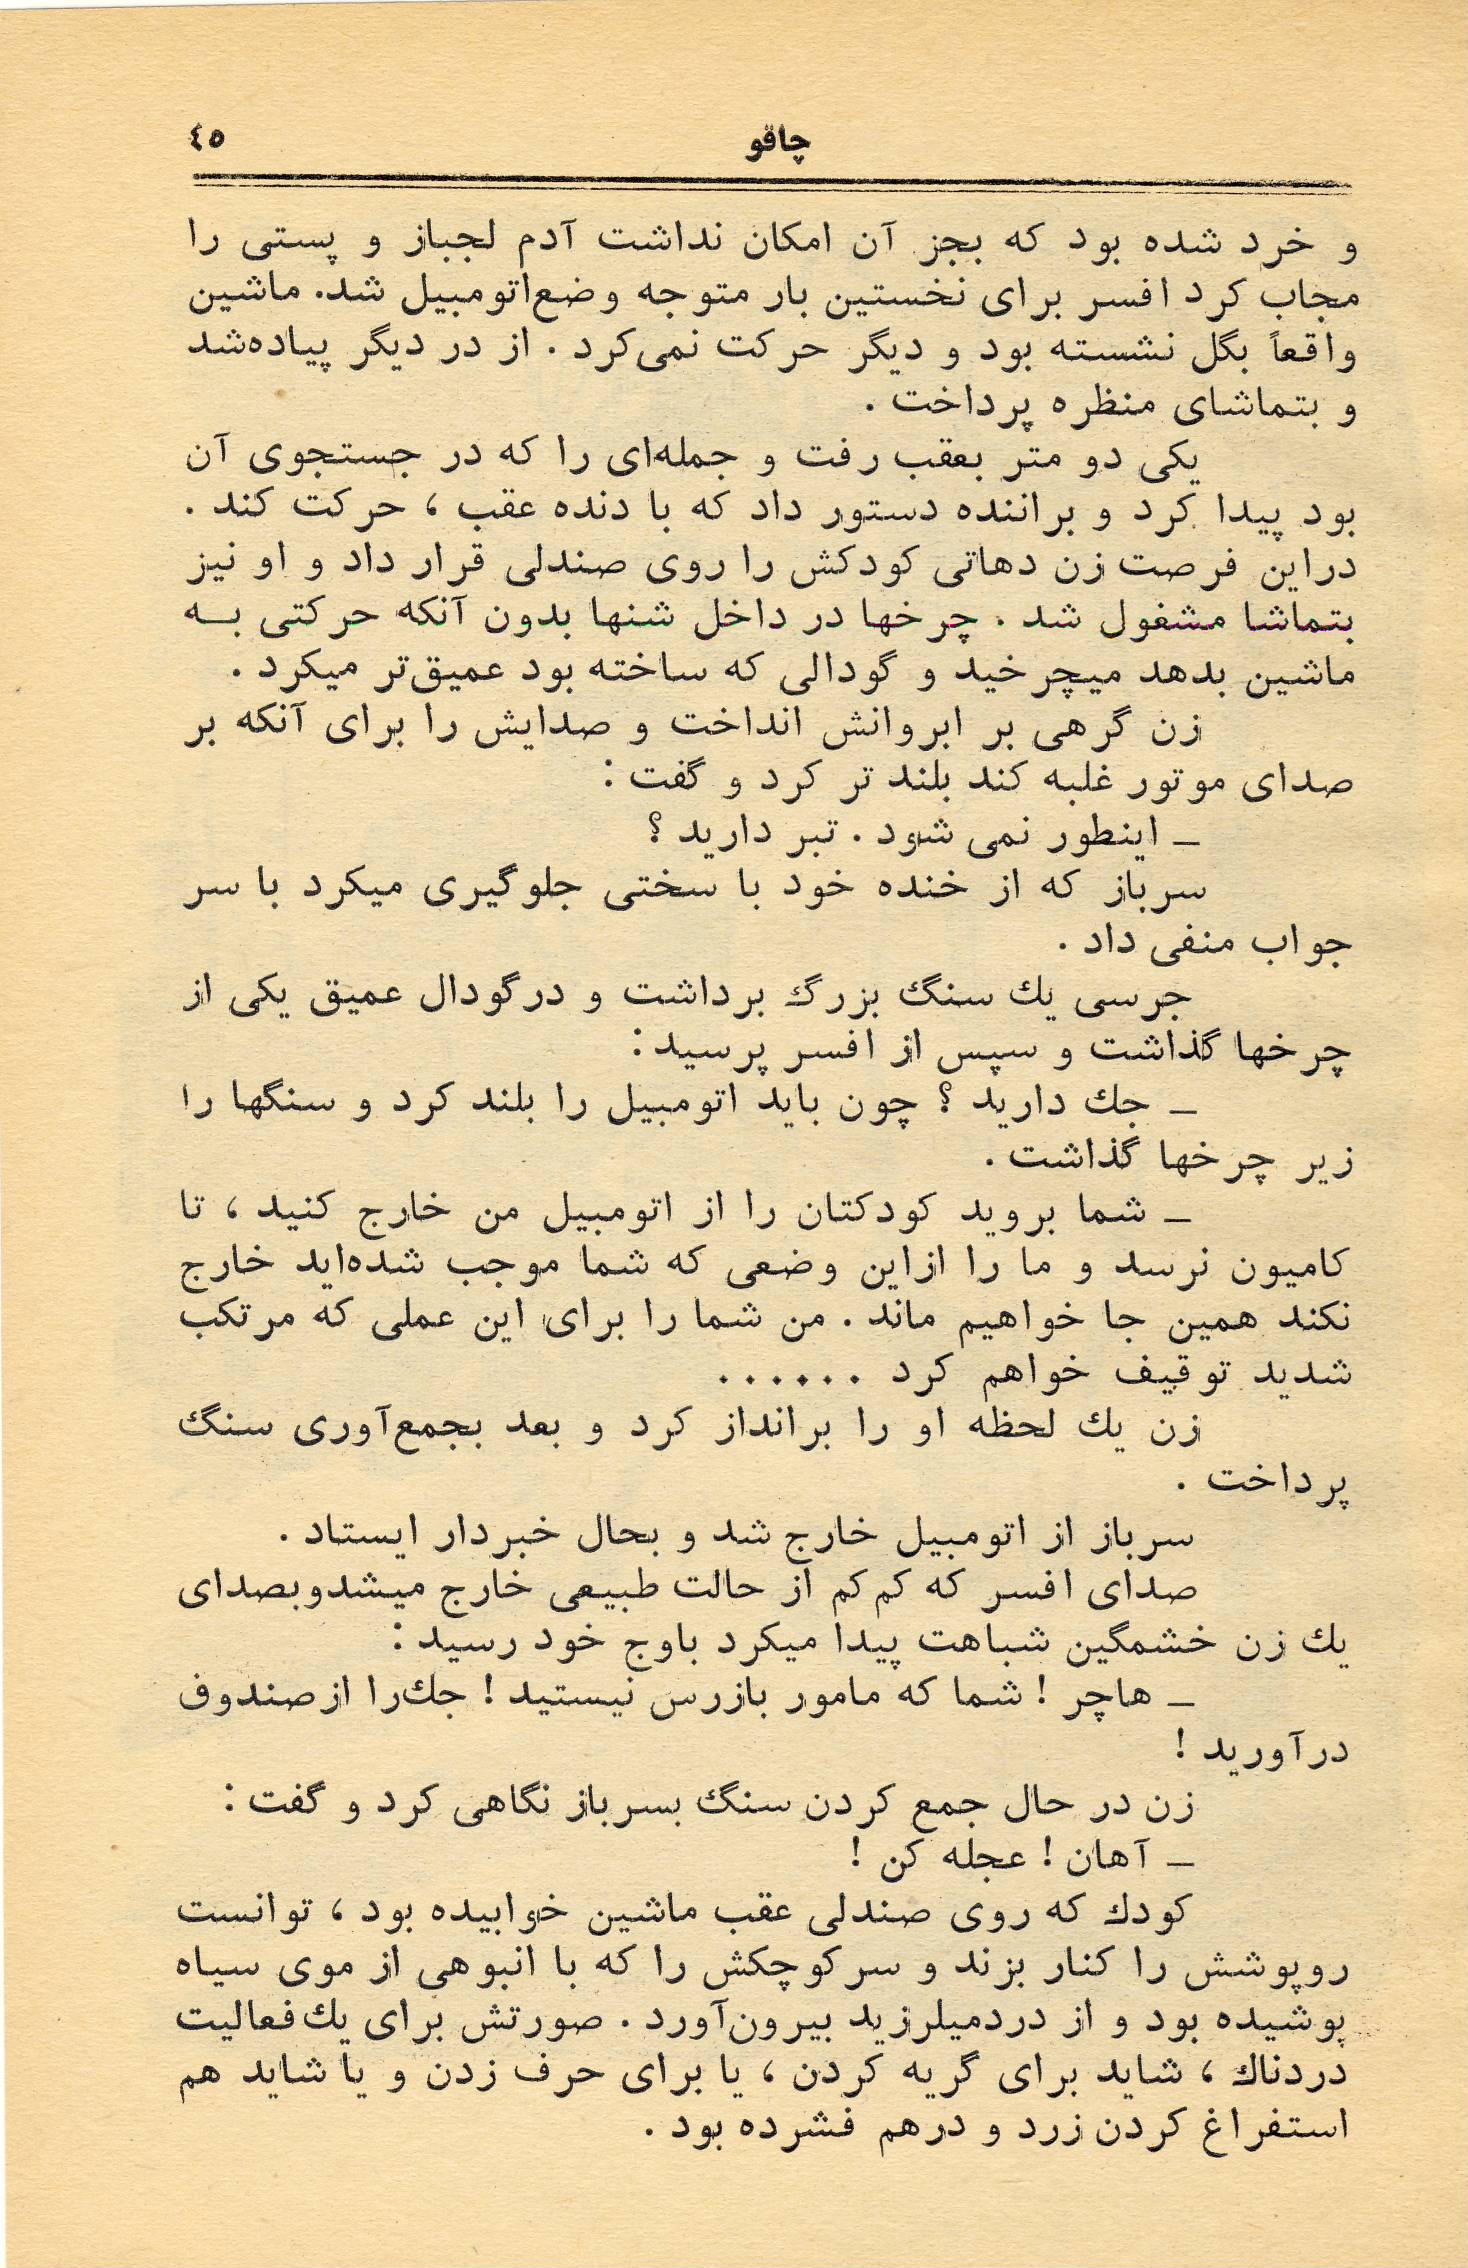 چاقو ٤٥
و خرد شده بود که بجز آن امکان نداشت آدم لجباز و پستی را
مجاب کرد افسر برای نخستین بار متوجه وضع‌اتومبیل شد. ماشین
واقعاً بگل نشسته بود و دیگر حرکت نمی‌کرد . از در دیگر پیاده‌شد
و بتماشای منظره پرداخت .
یکی دو متر بعقب رفت و جمله‌ای را که در جستجوی آن
بود پیدا کرد و براننده دستور داد که با دنده عقب ، حرکت کند .
دراین فرصت زن دهاتی کودکش را روی صندلی قرار داد و او نیز
بتماشا مشغول شد . چرخها در داخل شنها بدون آنکه حرکتی بـه
ماشین بدهد میچرخید و گودالی که ساخته بود عمیق‌تر میکرد .
زن گرهی بر ابروانش انداخت و صدایش را برای آنکه بر
صدای موتور غلبه کند بلند تر کرد و گفت :
ـ اینطور نمی شود . تبر دارید ؟
سرباز که از خنده خود با سختی جلوگیری میکرد با سر
جواب منفی داد .
جرسی یك سنگ بزرگ برداشت و درگودال عمیق یکی از
چرخها گذاشت و سپس از افسر پرسید :
ـ جك دارید ؟ چون باید اتومبیل را بلند کرد و سنگها را
زیر چرخها گذاشت .
ـ شما بروید کودکتان را از اتومبیل من خارج کنید ، تا
کامیون نرسد و ما را ازاین وضعی که شما موجب شده‌اید خارج
نکند همین جا خواهیم ماند . من شما را برای این عملی که مرتکب
شدید توقیف خواهم کرد . . . . . .
زن یك لحظه او را برانداز کرد و بعد بجمع‌آوری سنگ
پرداخت .
سرباز از اتومبیل خارج شد و بحال خبردار ایستاد .
صدای افسر که کم‌کم از حالت طبیعی خارج میشدوبصدای
یك زن خشمگین شباهت پیدا میکرد باوج خود رسید :
ـ هاچر ! شما که مامور بازرس نیستید ! جك‌را ازصندوف
درآورید !
زن در حال جمع کردن سنگ بسرباز نگاهی کرد و گفت :
ـ آهان ! عجله کن !
کودك که روی صندلی عقب ماشین خوابیده بود ، توانست
روپوشش را کنار بزند و سرکوچکش را که با انبوهی از موی سیاه
پوشیده بود و از دردمیلرزید بیرون‌آورد . صورتش برای یك‌فعالیت
دردناك ، شاید برای گریه کردن ، یا برای حرف زدن و یا شاید هم
استفراغ کردن زرد و درهم فشرده بود .